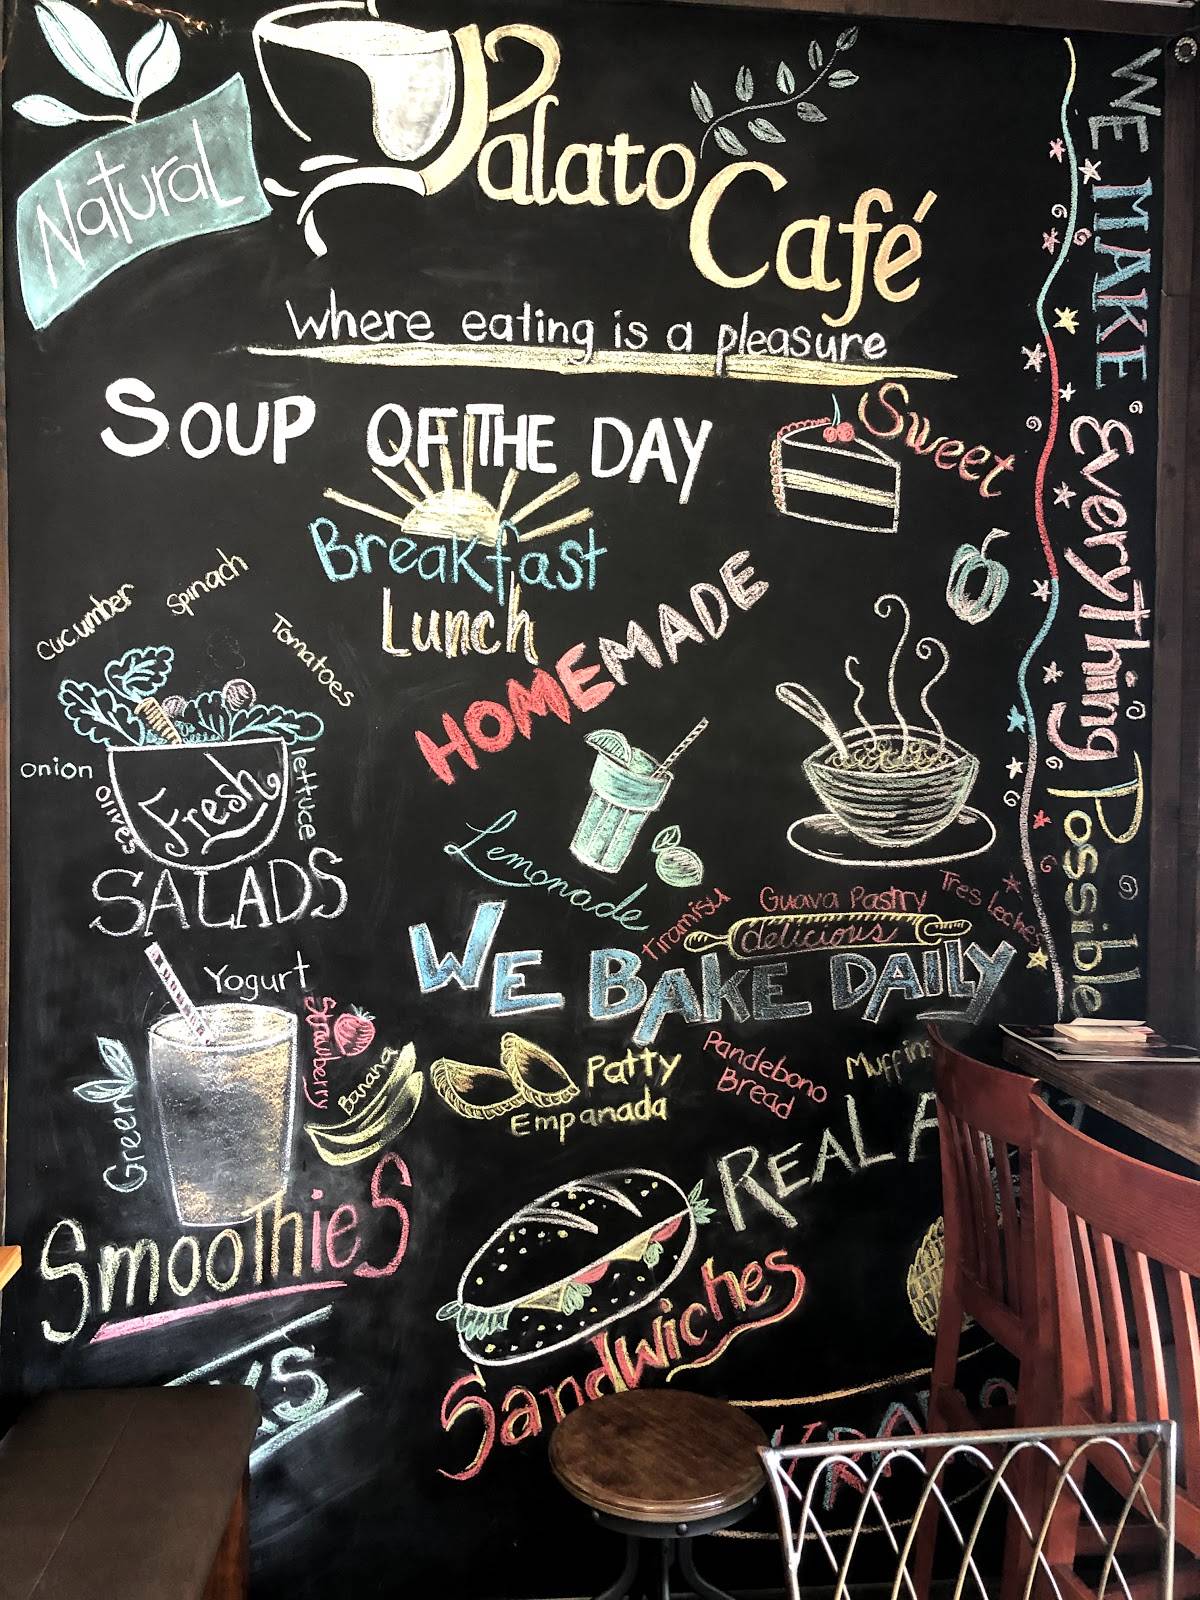 Natural
Palato
Café
Where eating is a pleasure
WE MAKE EVERYThing Possible
SOUP OF THE DAY
Sweet
Breakfast
Lunch
HOMEMADE
Cucumber
Spinach
Tomatoes
onion
olives
lettuce
Fresh
SALADS
Lemonade
Tiramisu
Guava Pastry
Tres leches
delicious
WE BAKE DAILY
Yogurt
Strawberry
Banana
Green
SmooThieS
Patty
Empanada
Pandebono
Bread
Muffins
REAL
Sandwiches